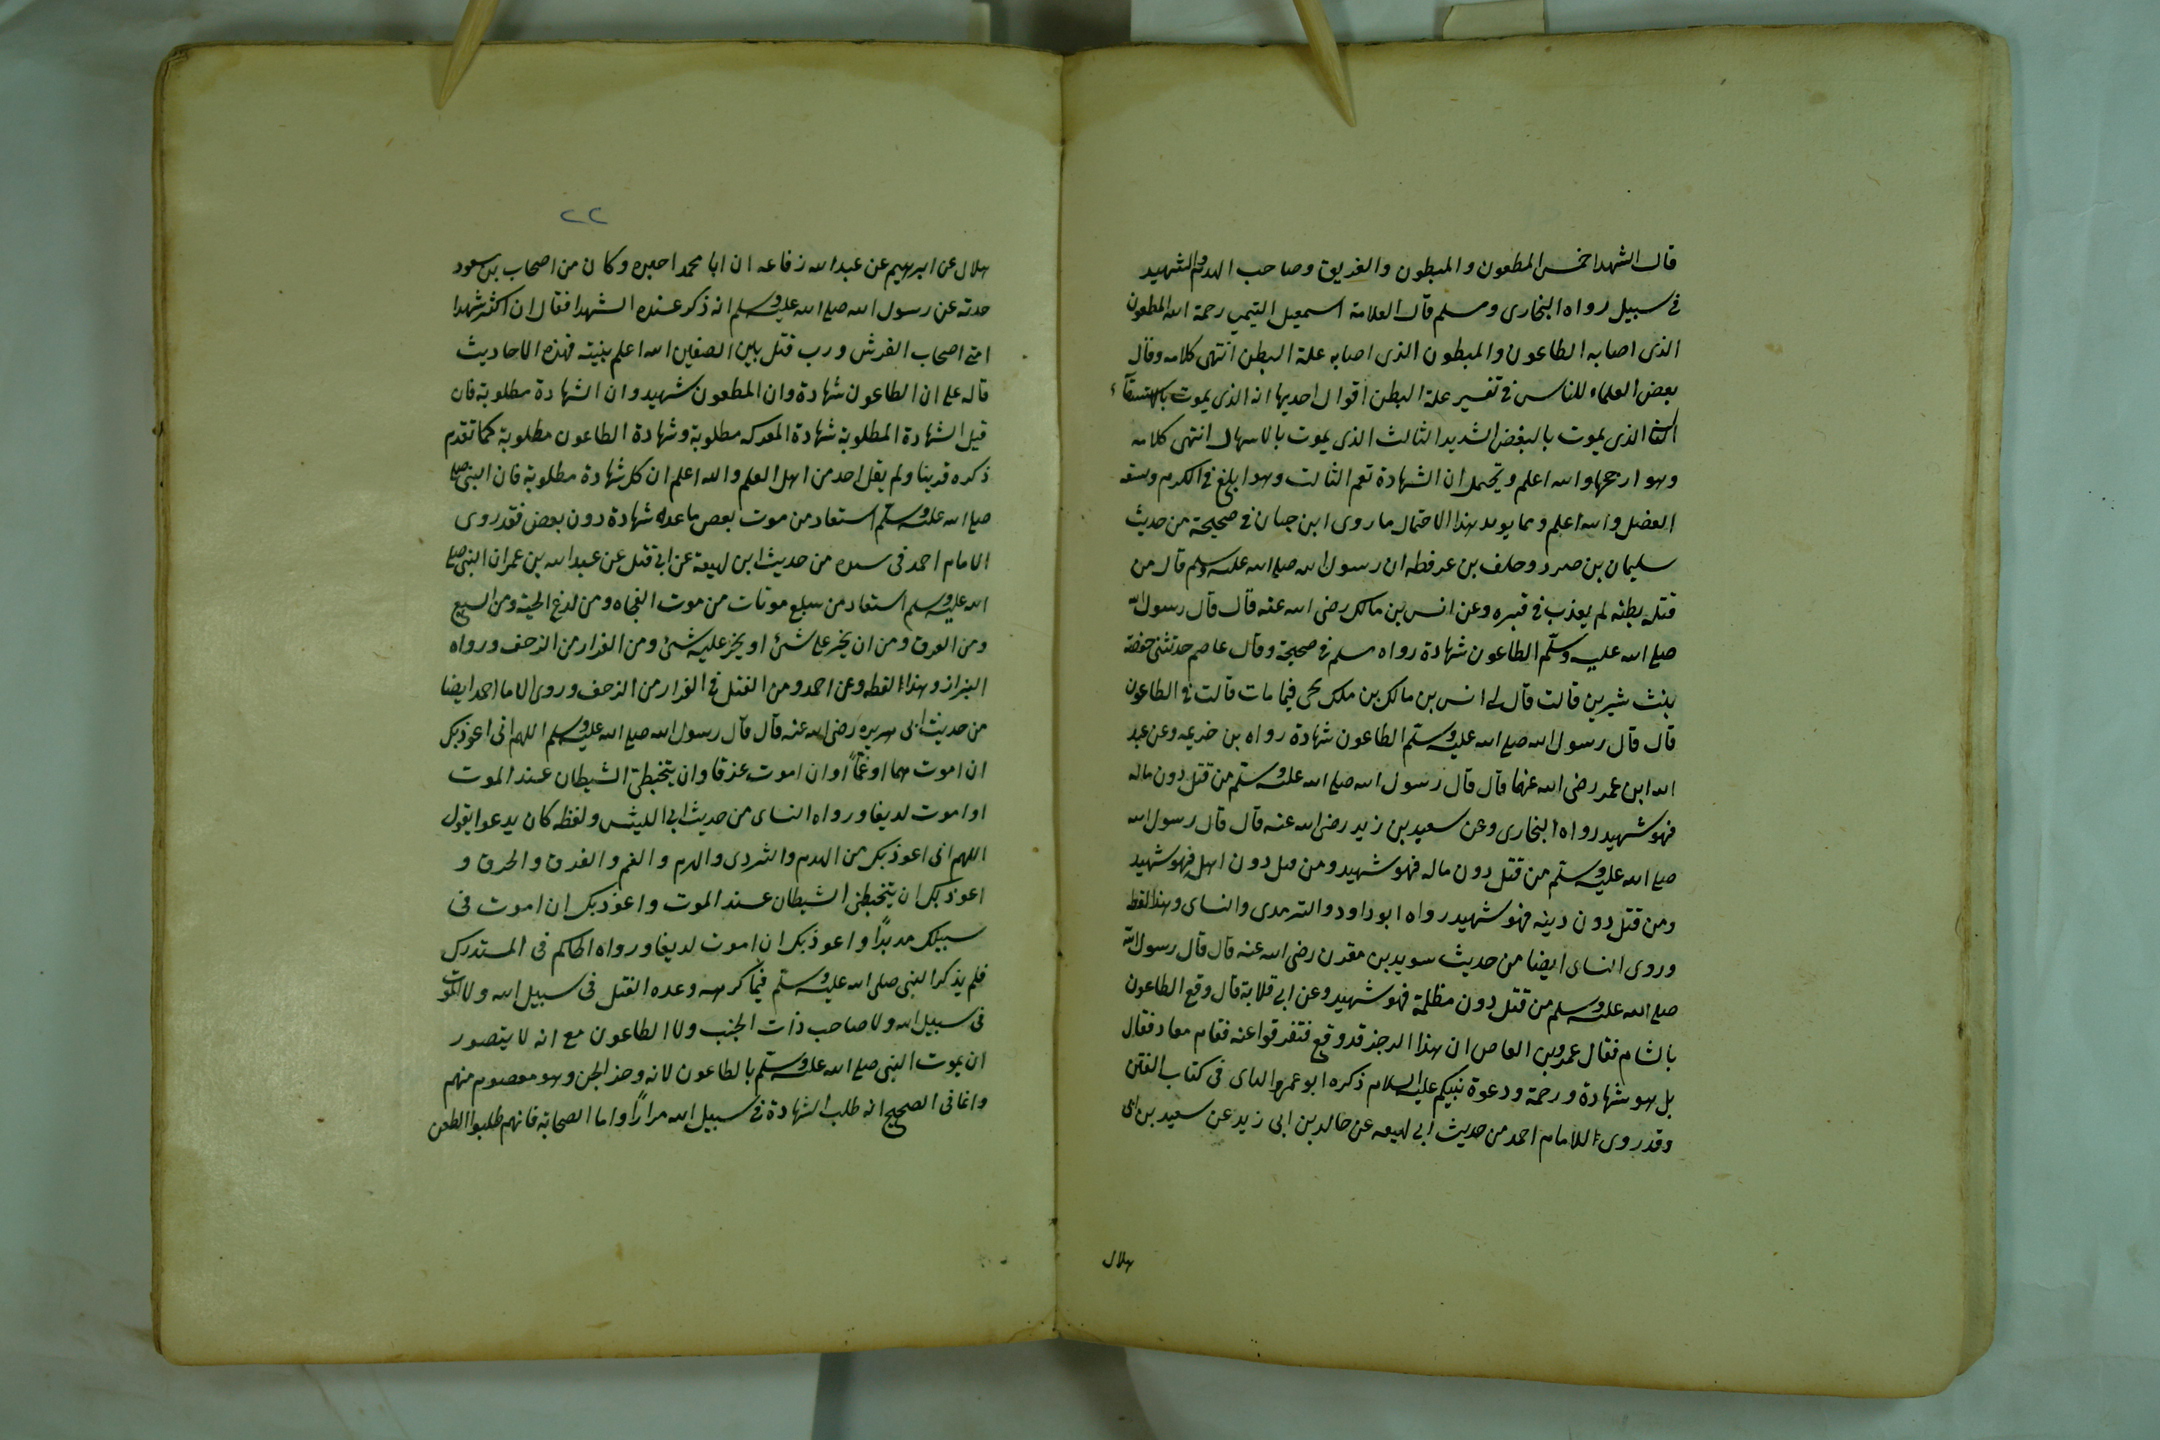 قال الشهدا خمس المطعون والمبطون والغريق وصاحب الهدم والشهيد
فى سبيل رواه البخارى ومسلم قال العلامة اسمعيل التيمى رحمة الله المطعون
الذى اصابه الطاعون والمبطون الذى اصابه علة البطن انتهى كلامه وقال
بعض العلماء للناس فى تفسير علة البطن اقوال احديها انه الذى يموت بالاستسقآء
الذى يموت بالبغض الشديد الثالث الذى يموت بالاسهال انتهى كلامه
وهو ارجحها والله اعلم ويحتمل ان الشهادة تعم الثالث وهو ابلغ فى الكرم وسعة
الفضل والله اعلم ومما يويد هذا الاحتمال ما روى ابن حبان فى صحيحة من حديث
سليمان بن صرد وحلف بن عرفطه ان رسول الله صلى الله عليه وسلم قال من
قتلة بطنه لم يعذب فى قبره وعن انس بن مالك رضى الله عنه قال قال رسول الله
صلى الله عليه وسلّم الطاعون شهادة رواه مسلم فى صحيحة وقال عاصم حدثتنى حفصة
بنت شيرين قالت قال لى انس بن مالك بن ملك يحى فيما مات قالت فى الطاعون
قال قال رسول الله صلى الله عليه وسلّم الطاعون شهادة رواه بن خزيمه وعن عبد
الله ابن عمر رضى الله عنهما قال قال رسول الله صلى الله عليه وسلّم من قتل دون ماله
فهو شهيد رواه البخارى وعن سعيد بن زيد رضى الله عنه قال قال رسول الله
صلى الله عليه وسلّم من قتل دون ماله فهو شهيد ومن قتل دون اهله فهو شهيد
ومن قتل دون دينه فهو شهيد رواه ابو داود والترمدى والنساى وهذا لفظ
وروى النساى ايضا من حديث سويد بن مقرن رضى الله عنه قال قال رسول الله
صلى الله عليه وسلم من قتل دون مظلمة فهو شهيد وعن ابى قلابة قال وقع الطاعون
بالشام فقال عمرو بن العاص ان هذا الرجز قد وقع فتفرقوا عنه فقام معاد فقال
بل هو شهادة ورحمة ودعوة نبيكم عليه السلام ذكره ابو عمرو الدانى فى كتاب الفتن
وقد روى اللامام احمد من حديث ابى لهيعه عن خالد بن ابى زيد عن سعيد بن ابى
هلال
٢٢
هلال عن ابرهيم عن عبد الله زفاعه ان ابا محمد اخبره وكان من اصحاب بن سعود
حدثه عن رسول الله صلى الله عليه وسلم انه ذكر عنده الشهدا فقال ان اكثر شهدا
امتى اصحاب الفرش ورب قتل بين الصفين الله اعلم بنيته فهذه الاحاديث
قاله على ان الطاعون شهادة وان المطعون شهيد وان الشهادة مطلوبة فان
قيل الشهادة المطلوبة شهادة المعركه مطلوبة وشهادة الطاعون مطلوبة كما تقدم
ذكره قريبنا ولم يقل احد من اهل العلم والله اعلم ان كل شهادة مطلوبة فان النبى صلى
صلى الله عليه وسلّم استعاد من موت بعض ما عده شهادة دون بعض فقد روى
الامام احمد فى من حديث ابن لهيعة عن ابى قتل عن عبد الله بن عمر ان النبى صلى
الله عليه وسلم استعاد من سبع موتات من موت الفجاه ومن لدغ الحية ومن السبع
ومن الغرق ومن ان يخر على شئ او يخر عليه شئ ومن الفرار من الزحف ورواه
البزاز وهذا لفظه وعن احمد ومن القتل فى الفرار من الزحف وروى الامام احمد ايضا
من حديث ابى هريره رضى الله عنه قال قال رسول الله صلى الله عليه وسلم اللهم انى اعوذبك
ان اموت هما او غمّاً او ان اموت غرقا وان يتخبطنى الشيطان عند الموت
او اموت لديغا ورواه النساى من حديث ابى الليثس ولفظه كان يدعوا يقول
اللهم انى اعوذبك من الهدم والتردى والهرم والغم والغرق والحرق و
اعوذبك ان يتخبطنى الشيطان عند الموت واعوذبك ان اموت فى
سبيلك مدبرًا واعوذبك ان اموت لديغا ورواه الحاكم فى المستدرك
فلم يذكر النبى صلى الله عليه وسلّم فيما كرهه وعده القتل فى سبيل الله ولا الموت
فى سبيل الله ولا صاحب ذات الجنب ولا الطاعون مع انه لا يتصور
ان يموت النبى صلى الله عليه وسلّم بالطاعون لانه وخز الجن وهو معصوم منهم
واغافى الصحيح انه طلب الشهادة فى سبيل الله مرارًا واما الصحابة فانهم طلبوا الطعن